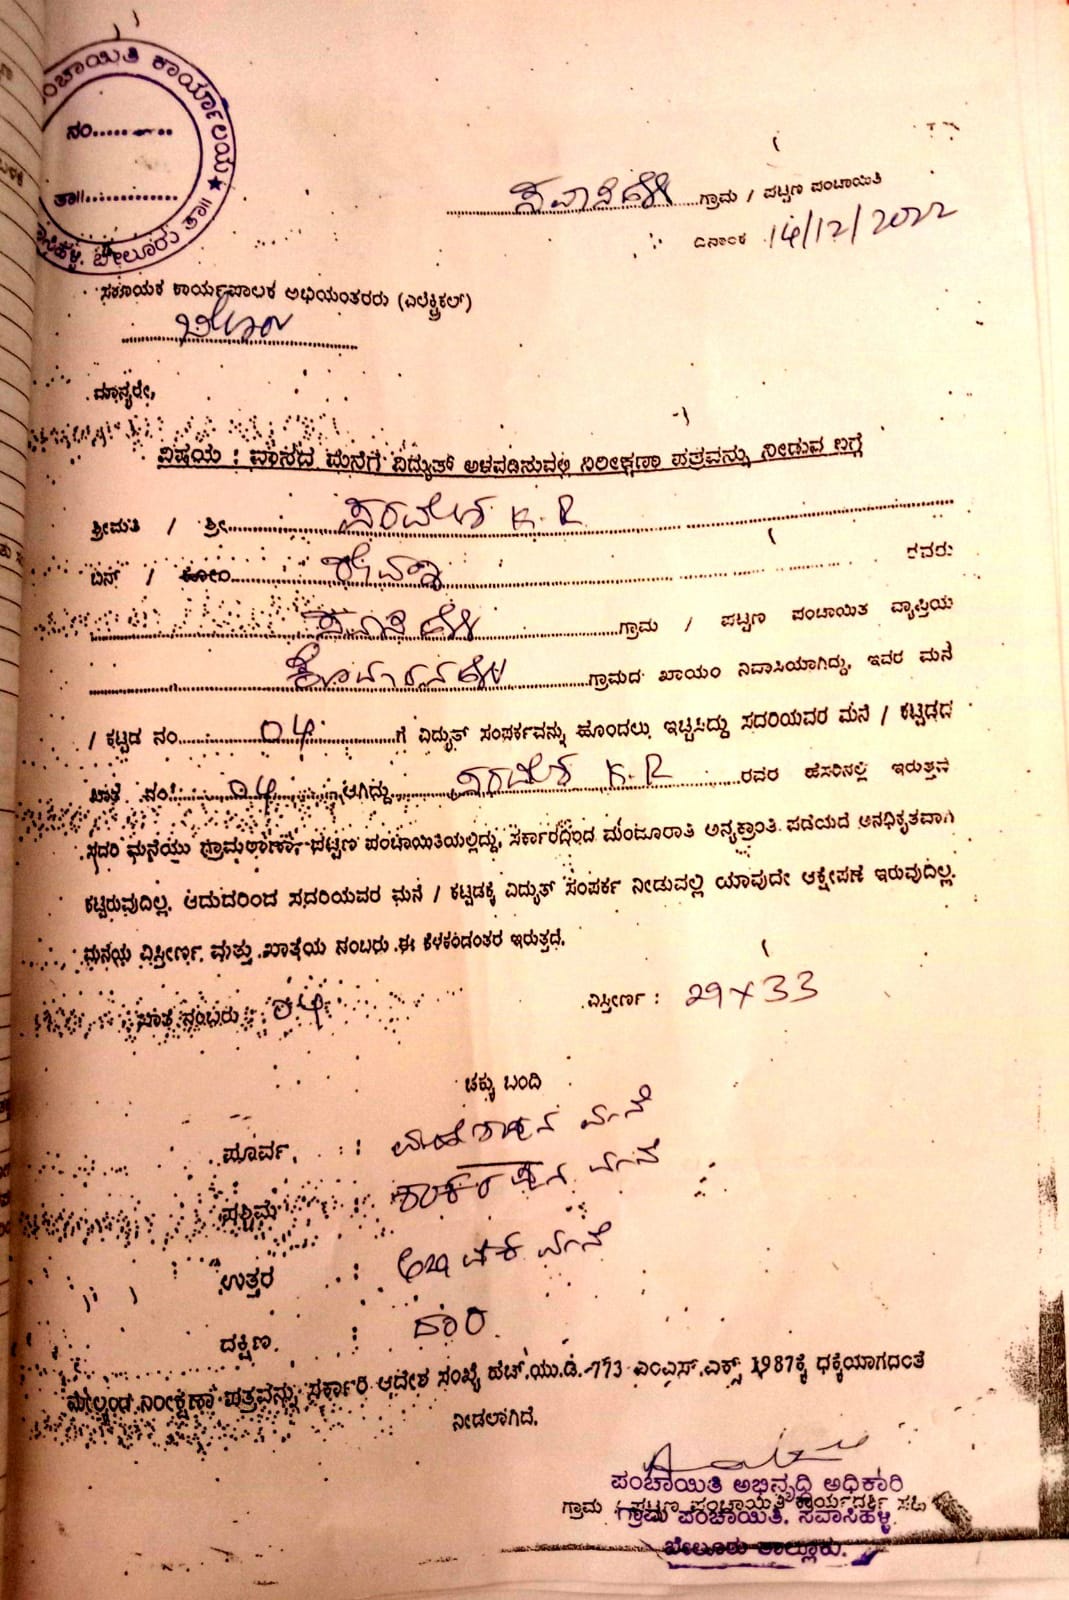 ಪಂಚಾಯಿತಿ ಕಾರ್ಯಾಲಯ ★
ನಂ...........
ತಾ||.............
ಬೇಲೂರು ತಾ||
ಸವಾಸಿಹಳ್ಳಿ ಗ್ರಾಮ / ಪಟ್ಟಣ ಪಂಚಾಯಿತಿ
ದಿನಾಂಕ 14/12/2022
ಸಹಾಯಕ ಕಾರ್ಯಪಾಲಕ ಅಭಿಯಂತರರು (ಎಲೆಕ್ಟ್ರಿಕಲ್)
ಬೇಲೂರು
ಮಾನ್ಯರೇ,
ವಿಷಯ : ವಾಸದ ಮನೆಗೆ ವಿದ್ಯುತ್ ಅಳವಡಿಸುವಲ್ಲಿ ನಿರೀಕ್ಷಣಾ ಪತ್ರವನ್ನು ನೀಡುವ ಬಗ್ಗೆ
ಶ್ರೀಮತಿ / ಶ್ರೀ K.R
ಬಿನ್ / ಕೋಂ ರವರು
ಸವಾಸಿಹಳ್ಳಿ ಗ್ರಾಮ / ಪಟ್ಟಣ ಪಂಚಾಯಿತ ವ್ಯಾಪ್ತಿಯ
ಗ್ರಾಮದ ಖಾಯಂ ನಿವಾಸಿಯಾಗಿದ್ದು, ಇವರ ಮನೆ
/ ಕಟ್ಟಡ ನಂ. 04 ಗೆ ವಿದ್ಯುತ್ ಸಂಪರ್ಕವನ್ನು ಹೊಂದಲು ಇಚ್ಚಿಸಿದ್ದು ಸದರಿಯವರ ಮನೆ / ಕಟ್ಟಡದ
ಖಾತೆ ನಂ. 04 ಆಗಿದ್ದು K.R ರವರ ಹೆಸರಿನಲ್ಲಿ ಇರುತ್ತದೆ
ಸದರಿ ಮನೆಯು ಗ್ರಾಮಠಾಣಾ, ಪಟ್ಟಣ ಪಂಚಾಯಿತಿಯಲ್ಲಿದ್ದು, ಸರ್ಕಾರದಿಂದ ಮಂಜೂರಾತಿ ಅನ್ಯಕ್ರಾಂತಿ ಪಡೆಯದೆ ಅನಧಿಕೃತವಾಗಿ
ಕಟ್ಟಿರುವುದಿಲ್ಲ. ಆದುದರಿಂದ ಸದರಿಯವರ ಮನೆ / ಕಟ್ಟಡಕ್ಕೆ ವಿದ್ಯುತ್ ಸಂಪರ್ಕ ನೀಡುವಲ್ಲಿ ಯಾವುದೇ ಆಕ್ಷೇಪಣೆ ಇರುವುದಿಲ್ಲ.
ಮನೆಯ ವಿಸ್ತೀರ್ಣ ಮತ್ತು ಖಾತೆಯ ನಂಬರು ಈ ಕೆಳಕಂಡಂತೆ ಇರುತ್ತದೆ.
ಖಾತೆ ನಂಬರು : 04 ವಿಸ್ತೀರ್ಣ : 29 x 33
ಚಕ್ಕು ಬಂದಿ
ಪೂರ್ವ : ಮನೆ
ಪಶ್ಚಿಮ : ಮನೆ
ಉತ್ತರ : ಮನೆ
ದಕ್ಷಿಣ : ದಾರಿ
ಮೇಲ್ಕಂಡ ನಿರೀಕ್ಷಣಾ ಪತ್ರವನ್ನು ಸರ್ಕಾರಿ ಆದೇಶ ಸಂಖ್ಯೆ ಹೆಚ್.ಯು.ಡಿ.-773 ಎಂಎಸ್.ಎಕ್ಸ್ 1987ಕ್ಕೆ ಧಕ್ಕೆಯಾಗದಂತೆ
ನೀಡಲಾಗಿದೆ.
ಪಂಚಾಯಿತಿ ಅಭಿವೃದ್ಧಿ ಅಧಿಕಾರಿ
ಗ್ರಾಮ / ಪಟ್ಟಣ ಪಂಚಾಯಿತಿ ಕಾರ್ಯದರ್ಶಿ ಸಹಿ
ಗ್ರಾಮ ಪಂಚಾಯಿತಿ, ಸವಾಸಿಹಳ್ಳಿ
ಬೇಲೂರು ತಾಲ್ಲೂಕು.